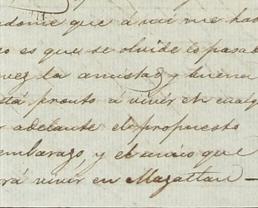 que á mi me has
es que se olvide lo pasa
vez la amistad y buena
está pronto á vivir en cualq
adelante el propuesto
embarazo, y el unico que
rá vivir en Mazatlan —